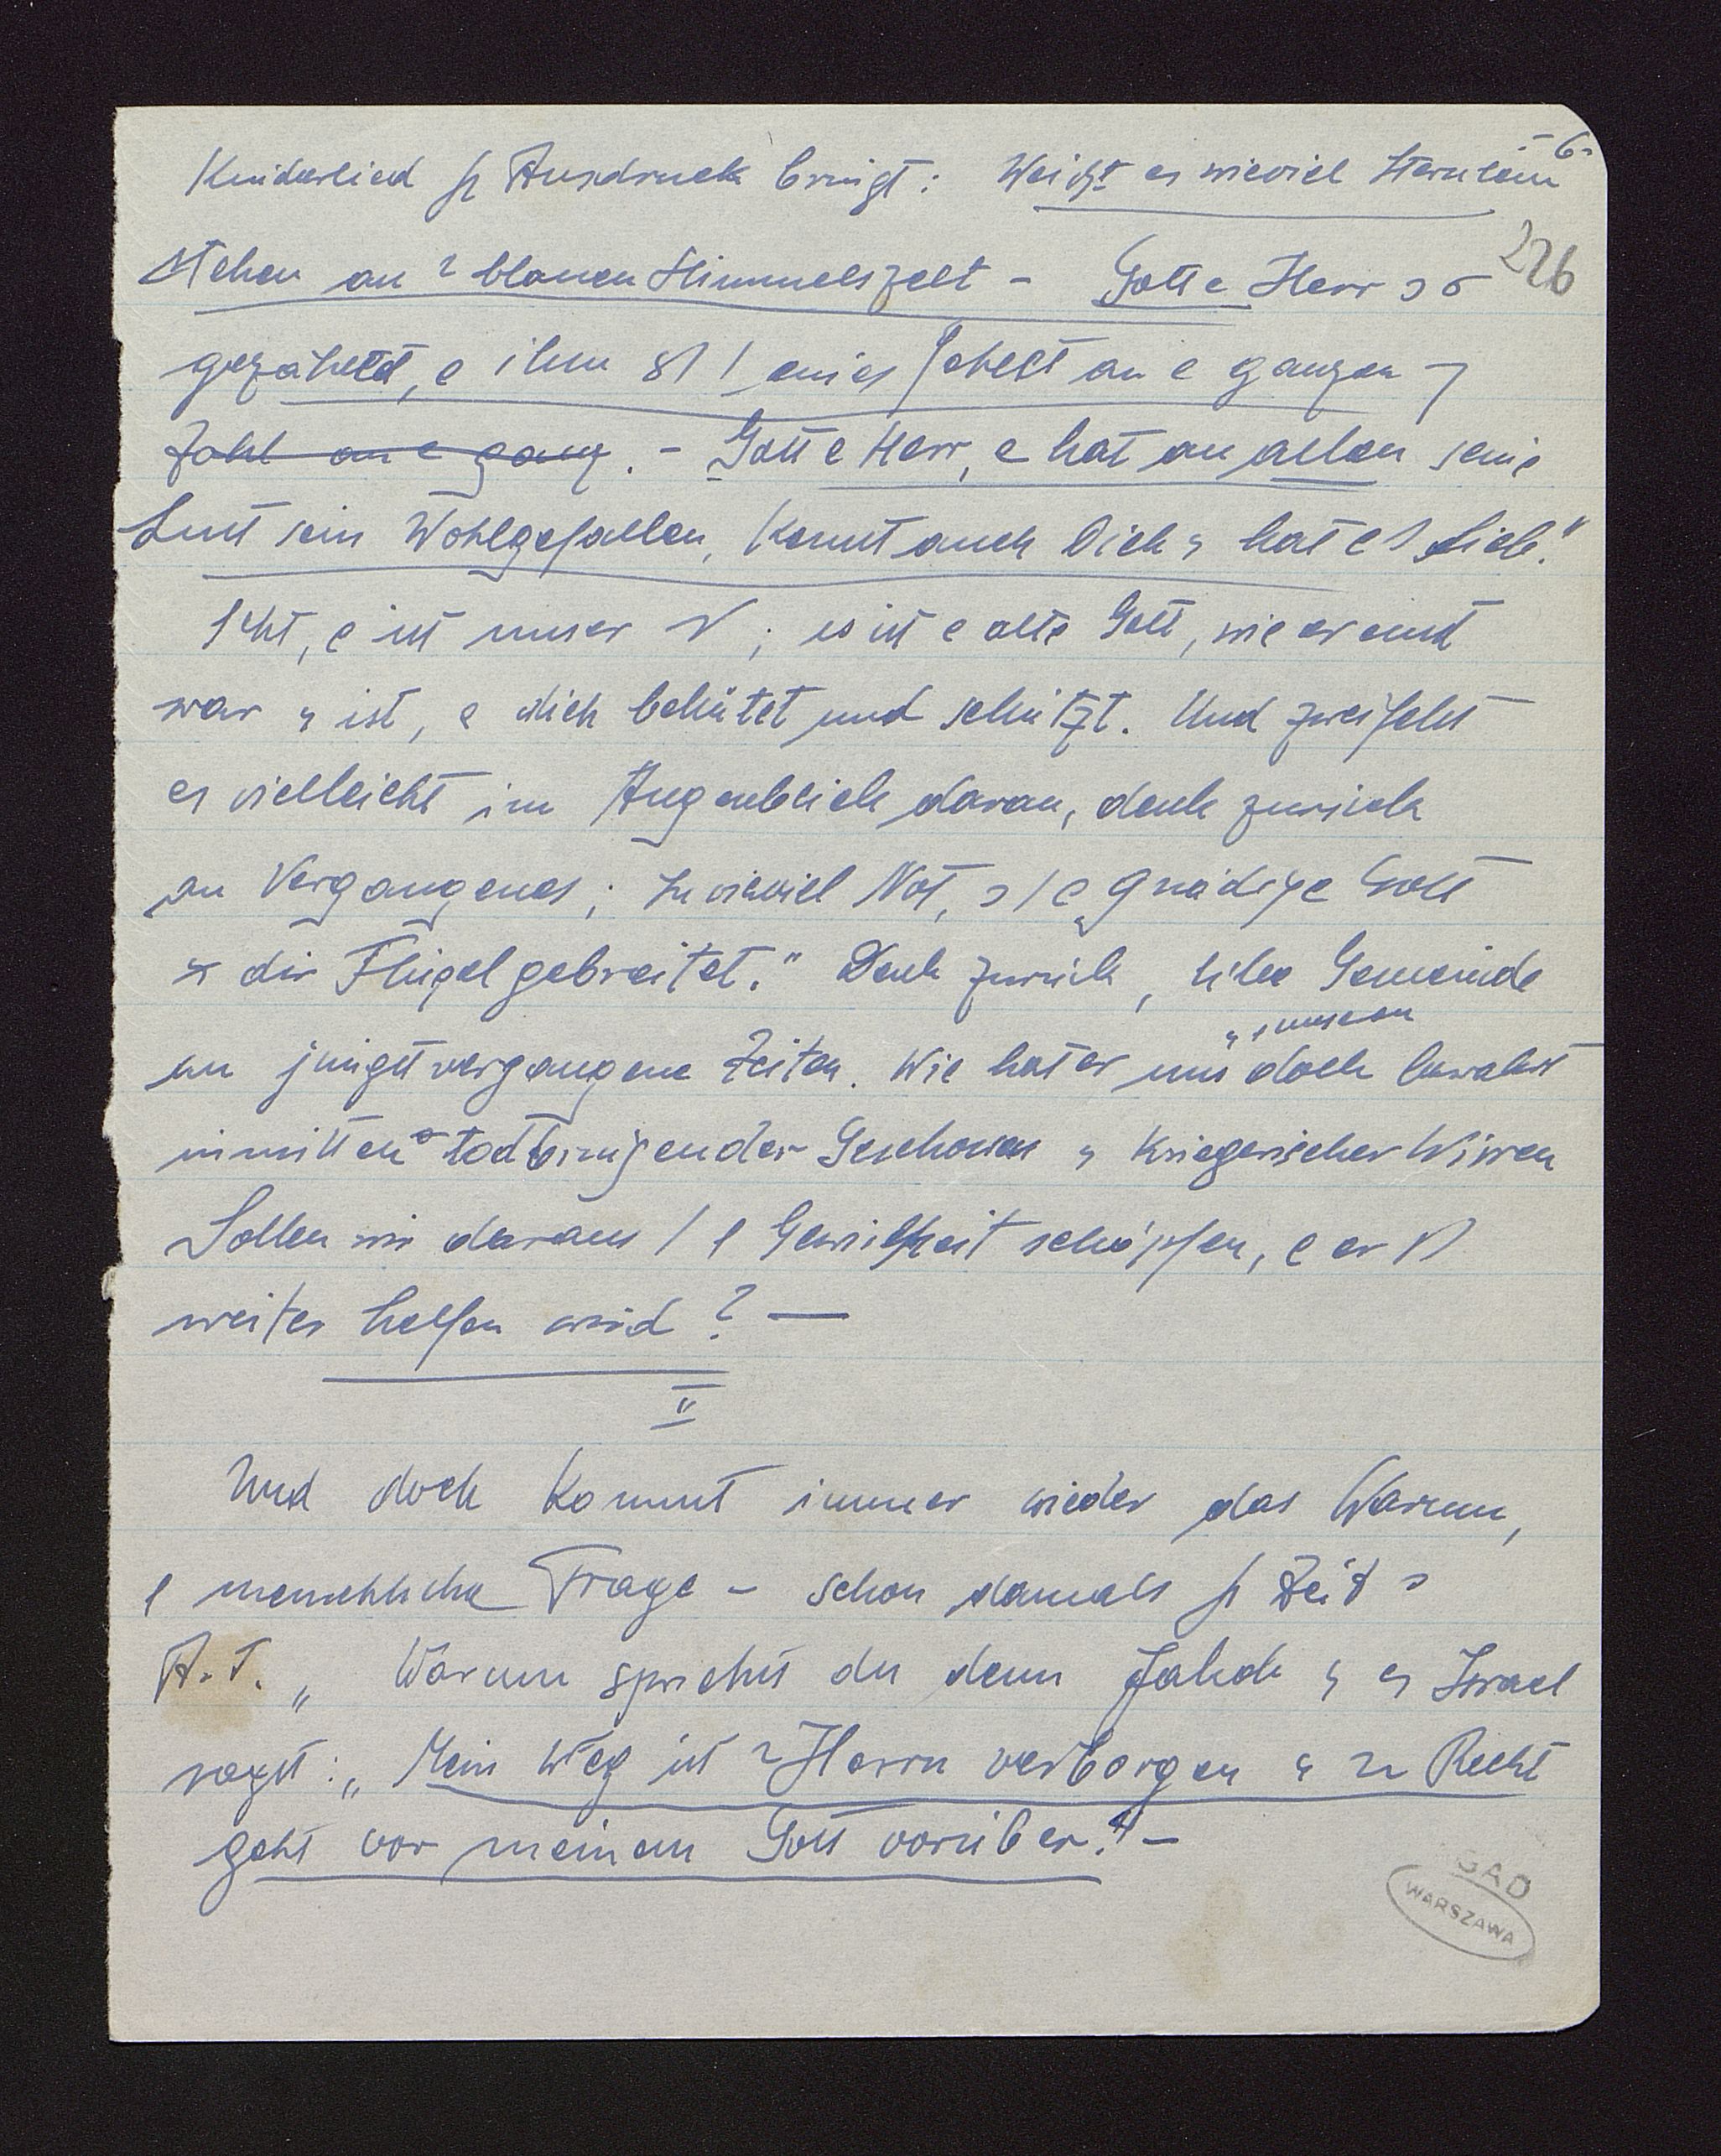 - 6 -
Kinderlied z Ausdruck bringt: Weißt es wieviel Sternlein
226
stehen an blauen Himmelszelt - Gott e Herr
gezählet, e ihm eines fehlet an e ganzen
Zahl an e ganz. - Gott e Herr, e hat an allen seine
Lust sein Wohlgefallen, kennt auch Dich u hat lieb."
, e ist unser ; es ist e alte Gott, wie er einst
war u ist, e dich behütet und schützt. Und zweifelst
es vielleicht im Augenblick daran, denk zurück
an Vergangenes; In wieviel Not, e gnädige Gott
dir Flügel gebreitet." Denk zurück, liebe Gemeinde
an jüngst vergangene Zeiten. Wie hat er uns doch bewahrt
inmitten todbringender Geschossen u kriegerischer Wirren
Sollen wir daraus Gewißheit schöpfen, e er
weiter helfen wird? —
II
Und doch kommt immer wieder das Warum,
e menschliche Frage - schon damals z Zeit
A.T. „ Warum sprichst du denn Jakob u Israel
sagst: „ Mein Weg ist Herrn verborgen u Recht
geht vor meinem Gott vorüber." -
GAD
WARSZAWA